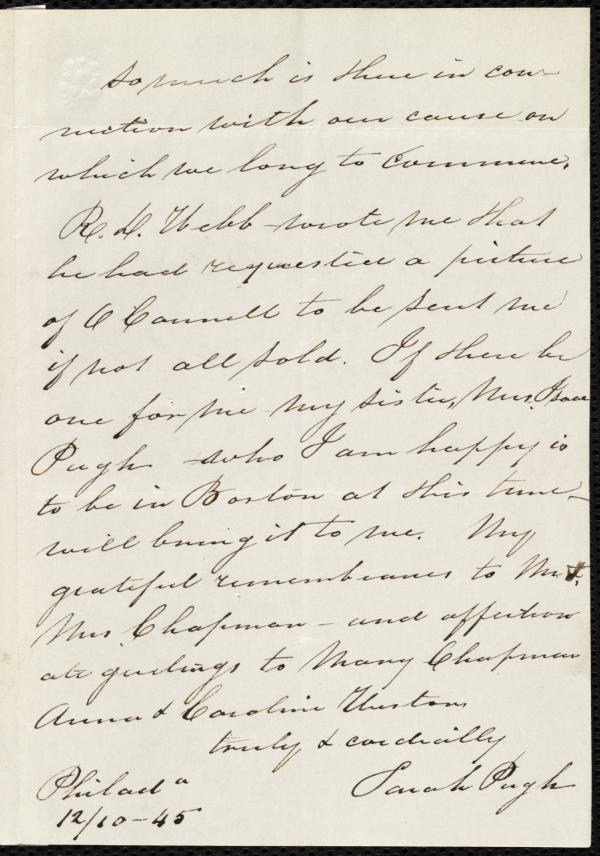 so much is there in con-
nection with our cause on
which we long to commune.
R. D. Webb wrote me that
he had requested a picture
of O'Connell to be sent me
if not all sold. If there be
one for me my sister, Mrs. Isaac
Pugh who I am happy is
to be in Boston at this time -
will bring it to me. My
grateful remembrances to Mr &
Mrs Chapman - and affection
ate greetings to Mary Chapman
Anna & Caroline Weston
truly & cordially
Sarah Pugh
Philad a
12/10-45